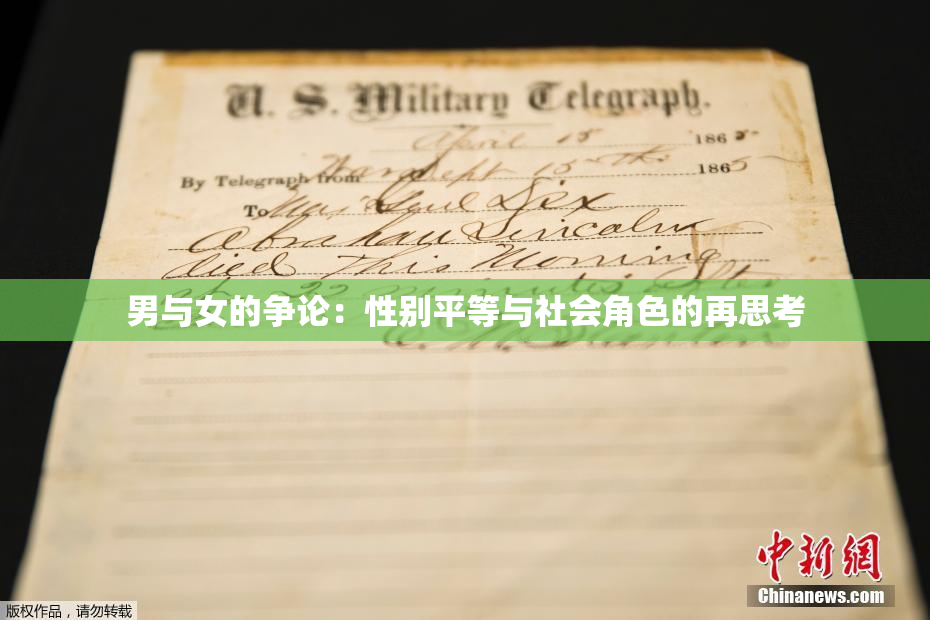 U. S. Military Telegraph.
April 15 1865
By Telegraph from War Dept 15th 1865
To Maj Genl Dix
Abraham Lincoln
died This Morning
22 minutes after
男与女的争论：性别平等与社会角色的再思考
E. M. Stanton
中新網
Chinanews.com
版权作品，请勿转载